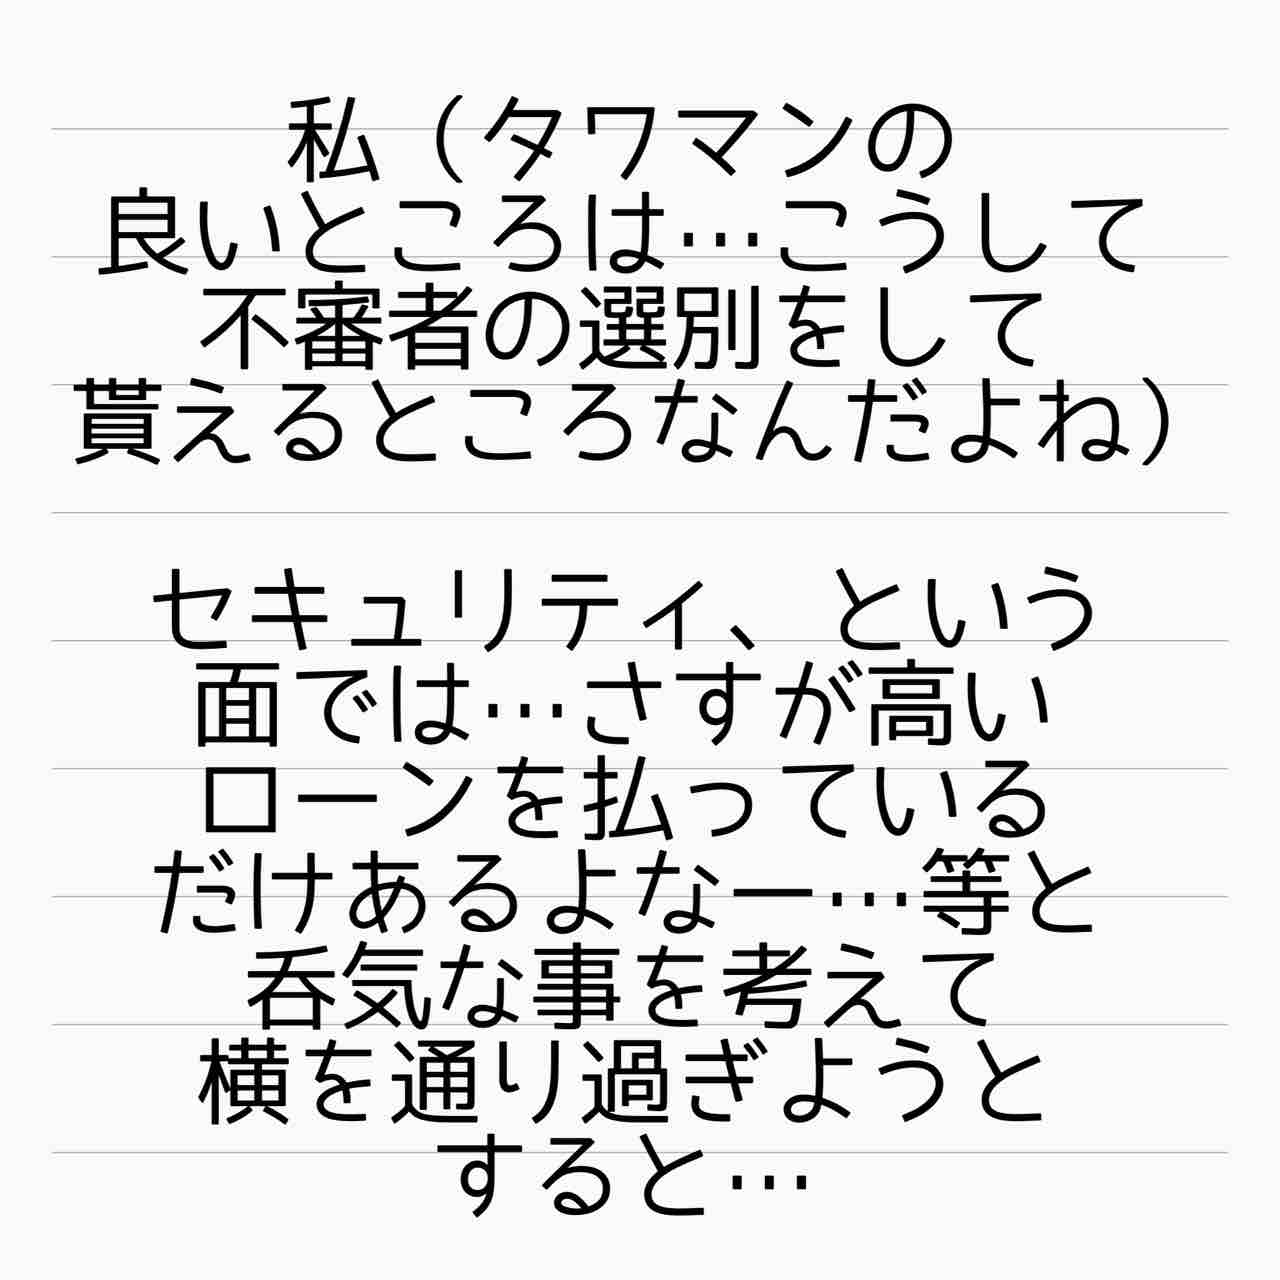 私（タワマンの
良いところは…こうして
不審者の選別をして
貰えるところなんだよね）
セキュリティ、という
面では…さすが高い
ローンを払っている
だけあるよなー…等と
呑気な事を考えて
横を通り過ぎようと
すると…